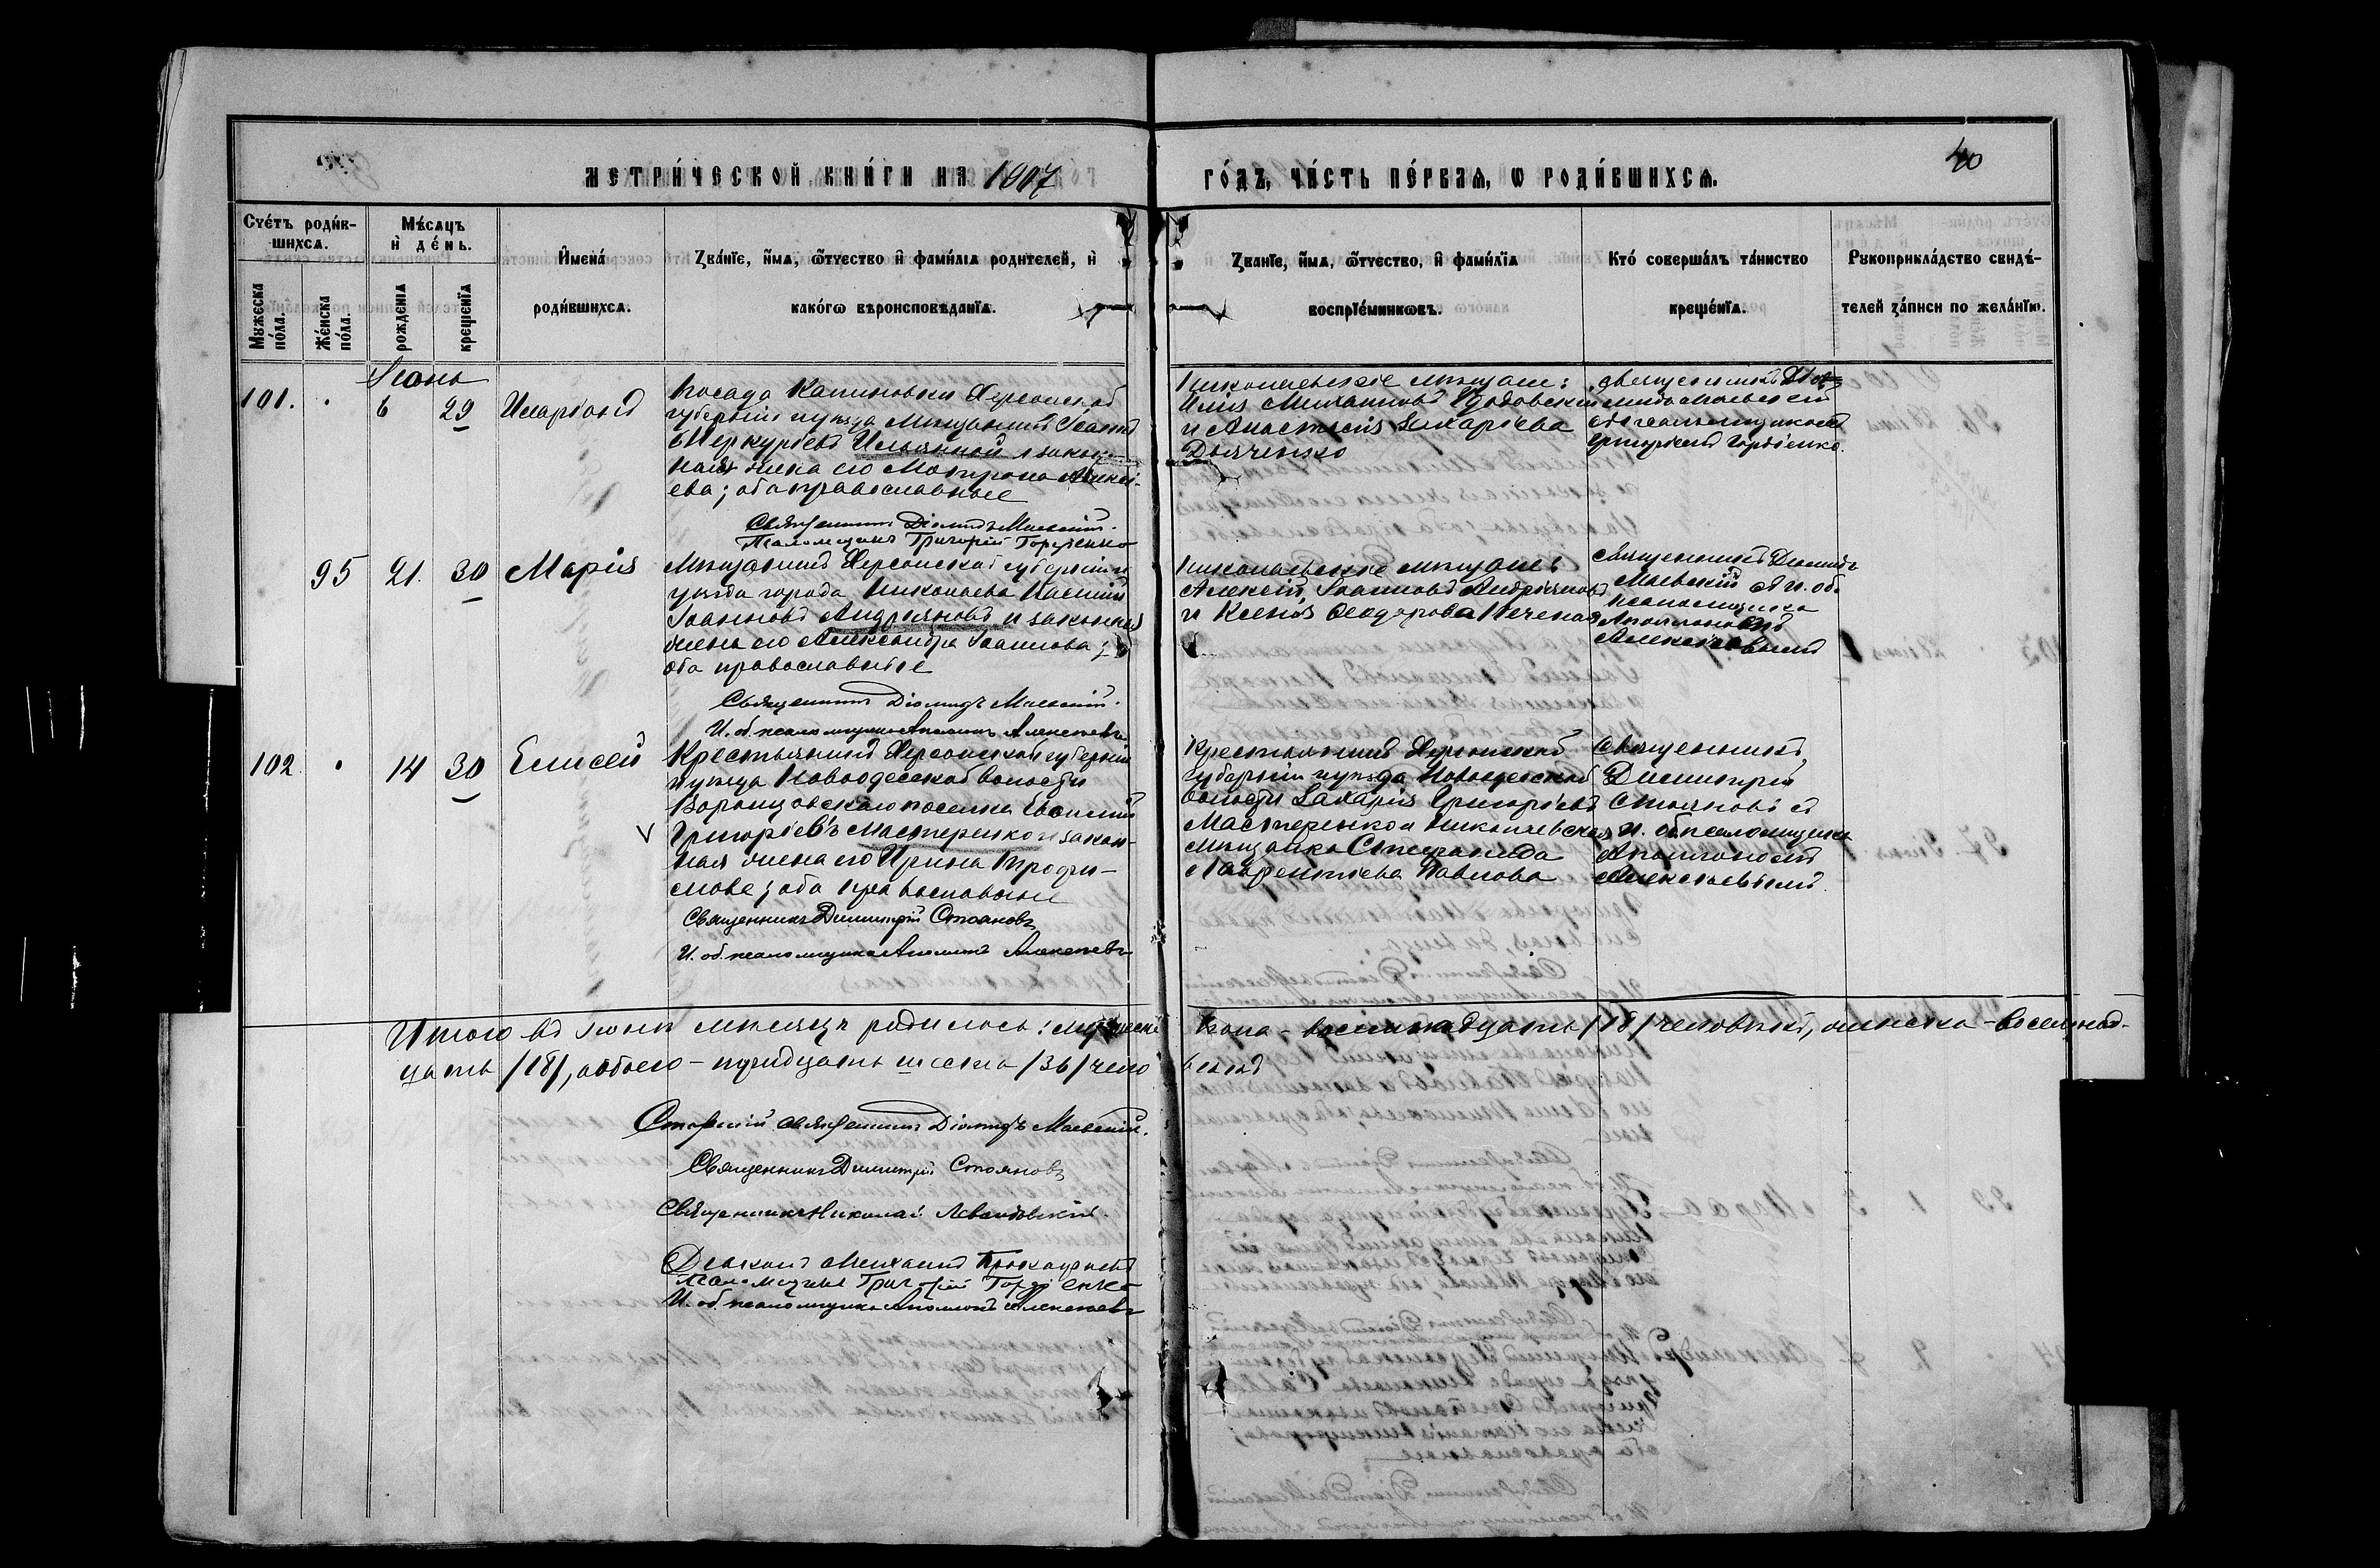 МЕТРИ́ЧЕСКОЙ КНИ́ГИ НА 1907
ГО́ДЪ, ЧА́СТЬ ПЕ́РВАѦ, Ѡ РОДИ́ВШИХСѦ.
40
Сче́тъ роди́в-
шихсѧ.
Мѣ́сѧцъ
и҆ де́нь.
И҆мена́
роди́вшихсѧ.
Зва́нїе, и҆́мѧ, ѻ҆́тчество и҆ фами́лїѧ родителей, и҆
како́гѡ вѣроисповѣданїѧ.
Зва́нїе, и҆́мѧ, ѻ҆́тчество, и҆ фами́лїѧ
воспрїе́мникѡвъ.
Кто́ соверша́лъ та́инство
креще́нїѧ.
Рꙋкоприкла́дство свидѣ́-
телей за́писи по жела́нїю.
Мꙋжеска
по́ла.
Же́нска
по́ла.
рожденїѧ
крещенїѧ
Іюнь
101.
6
29
Иларіонъ
Посада Калиновки Херсонской
губерніи и уѣзда мѣщанинъ Іоаннъ
Меркуріевъ и закон-
ная жена его Матрона Алексі-
ева; оба православные
Священникъ Діомидъ Маевскій.
Псаломщикъ Григорій Гордіенко
Николаевскіе мѣщане:
Илія Михаиловъ
и Анастасія Захаріева
Дьяченко
Священникъ Діо-
мидъ Маевскій
съ псаломщикомъ
Григоріемъ Гордіенко.
95
21.
30
Марія
Мѣщанинъ Херсонской губерніи и
уѣзда города Николаева
Іоанновъ Андріяновъ и законная
жена его Александра Іоаннова;
оба православные
Священникъ Діомидъ Маевскій.
И. об. псаломщика Аполлонъ Алексѣевъ
Николаевскіе мѣщане:
Алексій Іоанновъ Андріяновъ
и Ксенія Ѳеодорова
Священникъ Діомидъ
Маевскій съ и. об.
псаломщика
Аполлономъ
Алексѣевымъ
102
14
30
Елисей
Крестьянинъ Херсонской губерніи
и уѣзда Новоодесской волости
Воронцовского поселка Евѳимій
Григоріевъ Мастеренко и закон-
ная жена его Ирина Трофи-
мова; оба православные
Священникъ Димитрій Стояновъ
И. об. псаломщика Аполлонъ Алексѣевъ
Крестьянинъ Херсонской
губерніи и уѣзда Новоодесской
волости Захарія Григоріевъ
Мастеренко и Николаевская
мѣщанка Стефанида
Лаврентіева Павлова
Священникъ
Димитрій
Стояновъ съ
и. об. псаломщика
Аполлономъ
Алексѣевымъ.
Итого въ Іюнѣ мѣсяцѣ родилось: мужеска
пола – восемнадцать /18/ человѣкъ, женска – восемнад-
цать /18/, обоего – тридцать шесть /36/ чело
вѣкъ
Старшій священникъ Діомидъ Маевскій.
Священникъ Димитрій Стояновъ
Священникъ Николай Левандовскій.
Діаконъ Михаилъ
Псаломщикъ Григорій Гордіенко
И. об. псаломщика Аполлонъ Алексѣевъ